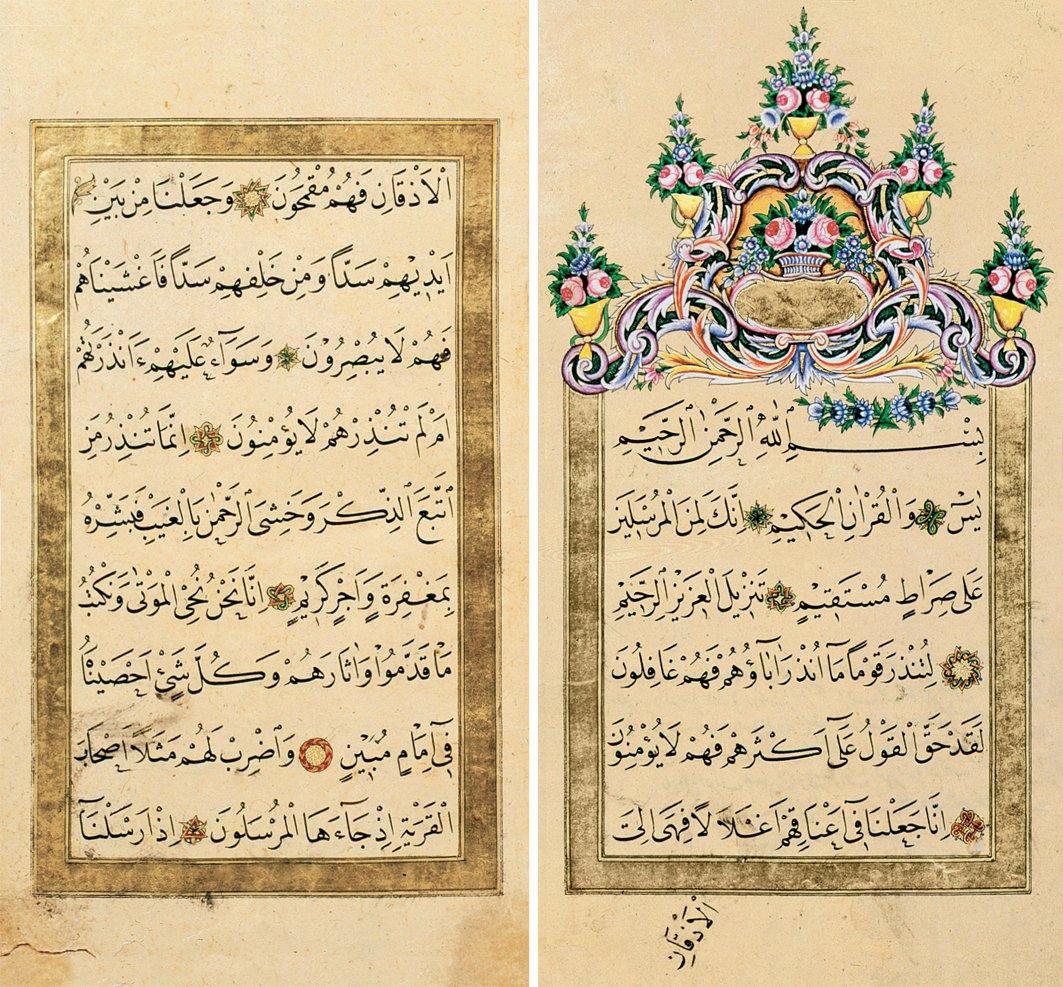 بِسْمِ اللّٰهِ الرَّحْمٰنِ الرَّحِيمِ
يٰسٓ وَالْقُرْاٰنِ الْحَكِيمِ اِنَّكَ لَمِنَ الْمُرْسَلِينَ
عَلٰى صِرَاطٍ مُسْتَقِيمٍ تَنْزِيلَ الْعَزِيزِ الرَّحِيمِ
لِتُنْذِرَ قَوْمًا مَٓا اُنْذِرَ اٰبَٓاؤُهُمْ فَهُمْ غَافِلُونَ
لَقَدْ حَقَّ الْقَوْلُ عَلٰٓى اَكْثَرِهِمْ فَهُمْ لَا يُؤْمِنُونَ
اِنَّا جَعَلْنَا فٓى اَعْنَاقِهِمْ اَغْلَالًا فَهِىَ اِلَى
الْاَذْقَانِ
الْاَذْقَانِ فَهُمْ مُقْمَحُونَ وَجَعَلْنَا مِنْ بَيْنِ
اَيْدِيهِمْ سَدًّا وَمِنْ خَلْفِهِمْ سَدًّا فَاَغْشَيْنَاهُمْ
فَهُمْ لَا يُبْصِرُونَ وَسَوَٓاءٌ عَلَيْهِمْ ءَاَنْذَرْتَهُمْ
اَمْ لَمْ تُنْذِرْهُمْ لَا يُؤْمِنُونَ اِنَّمَا تُنْذِرُ مَنِ
اتَّبَعَ الذِّكْرَ وَخَشِىَ الرَّحْمٰنَ بِالْغَيْبِ فَبَشِّرْهُ
بِمَغْفِرَةٍ وَاَجْرٍ كَرِيمٍ اِنَّا نَحْنُ نُحْىِ الْمَوْتٰى وَنَكْتُبُ
مَا قَدَّمُوا وَاٰثَارَهُمْ وَكُلَّ شَىْءٍ اَحْصَيْنَاهُ
فٓى اِمَامٍ مُبِينٍ وَاضْرِبْ لَهُمْ مَثَلًا اَصْحَابَ
الْقَرْيَةِ اِذْ جَٓاءَهَا الْمُرْسَلُونَ اِذْ اَرْسَلْنَٓا